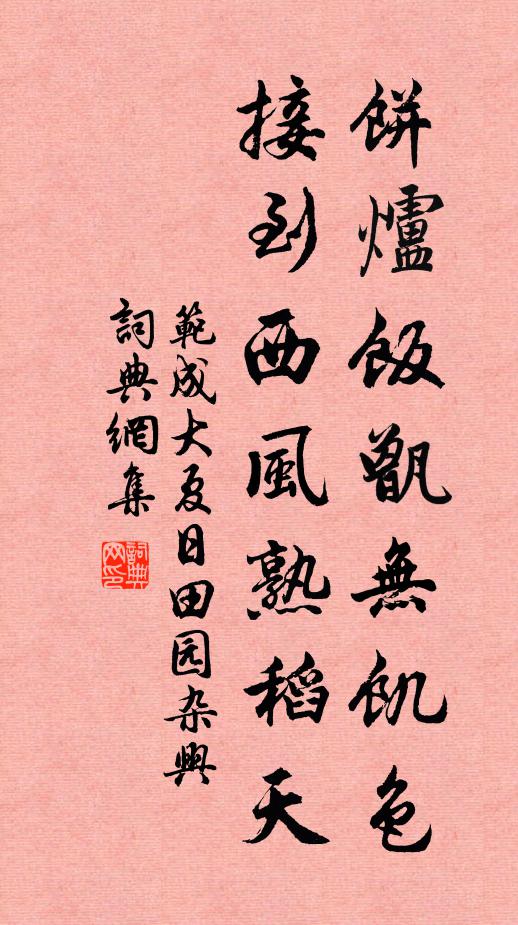 餅爐飯甑無飢色
接到西風熟稻天
範成大夏日田园杂興
詞典網集
詞典网印